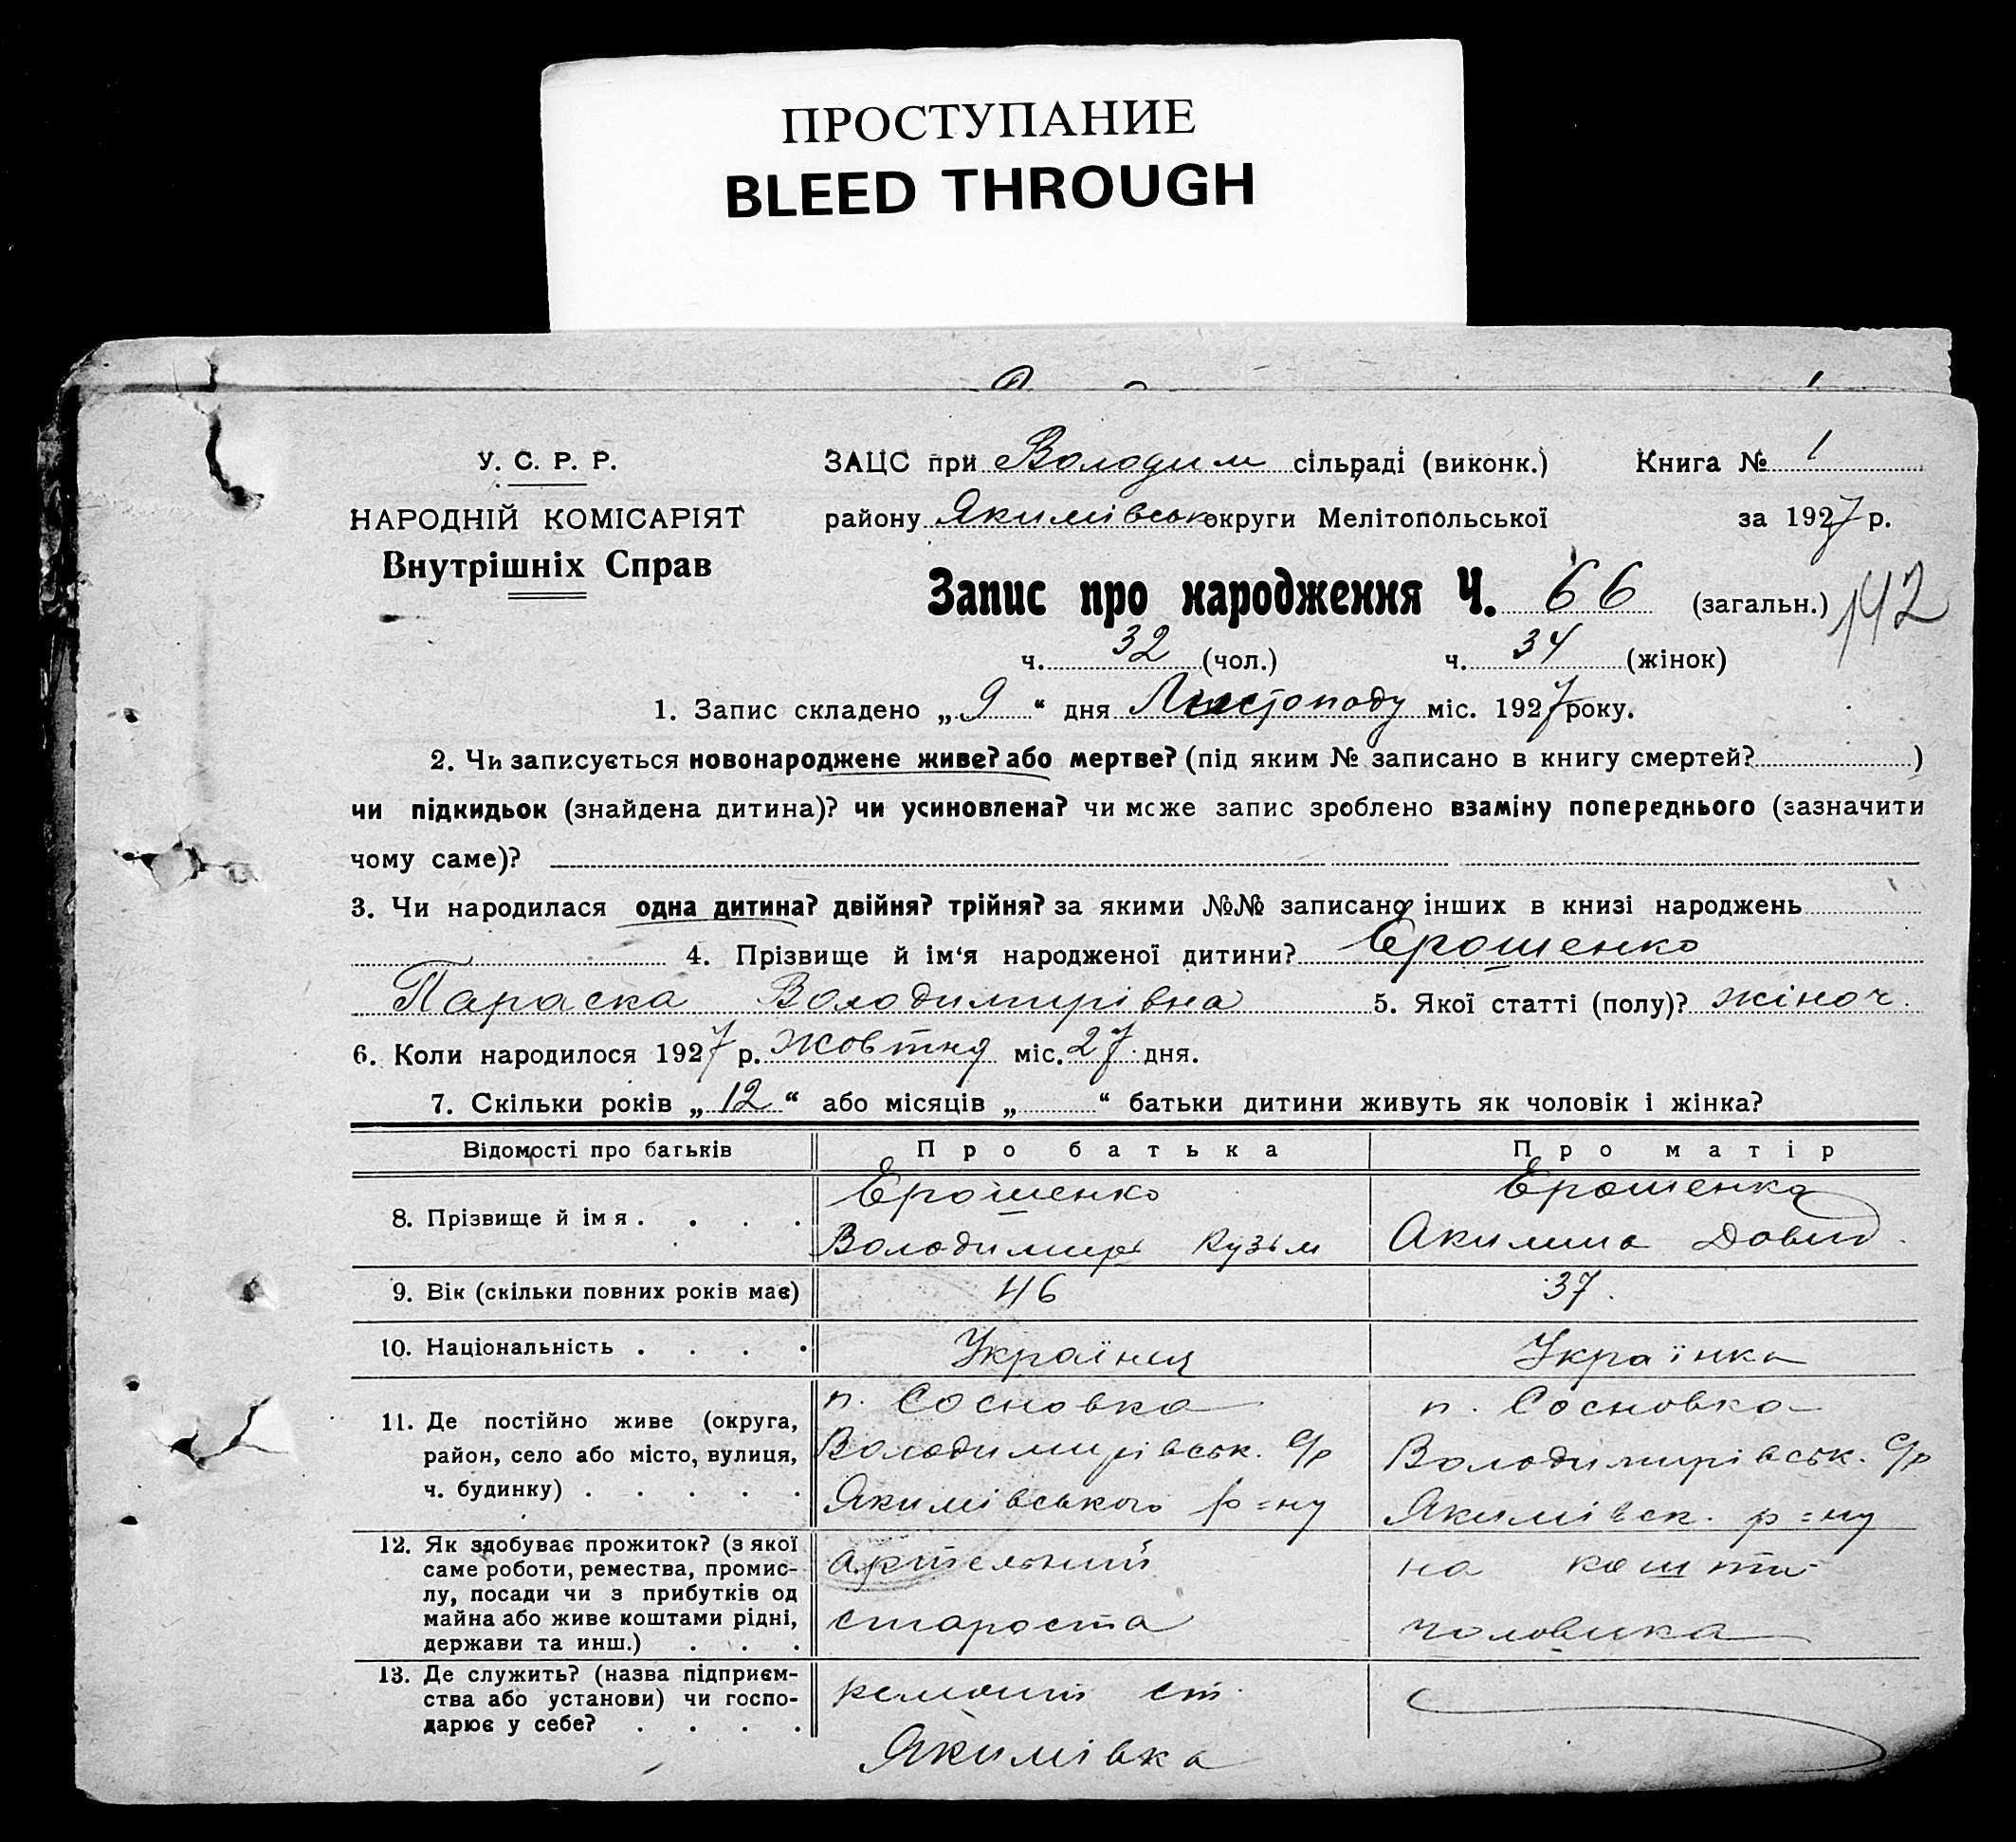 ПРОСТУПАНИЕ
BLEED THROUGH
У. С. Р. Р.
НАРОДНІЙ КОМІСАРІЯТ
Внутрішніх Справ
ЗАЦС при Володим сільраді (виконк.) Книга № 1
району Якимівськ округи Мелітопольської за 1927 р.
Запис про народження Ч. 66 (загальн.) 142
ч. 32 (чол.) ч. 34 (жінок)
1. Запис складено „ 9 “ дня Листопаду міс. 1927 року.
2. Чи записується новонароджене живе? або мертве? (під яким № записано в книгу смертей? )
чи підкидьок (знайдена дитина)? чи усиновлена? чи може запис зроблено взаміну попереднього (зазначити
чому саме)?
3. Чи народилася одна дитина? двійня? трійня? за якими №№ записано інших в книзі народжень
4. Прізвище й ім‘я народженої дитини? Єрошенко
Параска Володимирівна 5. Якої статті (полу)? жіноч.
6. Коли народилося 1927 р. жовтня міс. 27 дня.
7. Скільки років „ 12 “ або місяців „ “ батьки дитини живуть як чоловік і жінка?
Відомості про батьків Про батька Про матір
8. Прізвище й імя . . . .
Єрошенко
Володимирь Кузьм
Єрошенка
Акилина Довид.
9. Вік (скільки повних років має) 46 37.
10. Національність . . . . Українец Українка
11. Де постійно живе (округа,
район, село або місто, вулиця,
ч. будинку) . . . . .
п. Сосновка
Володимирівськ. С/р
Якимівського р=ну
п. Сосновка
Володимирівськ. С/р
Якимівск. р=ну
12. Як здобуває прожиток? (з якої
саме роботи, ремества, промис-
лу, посади чи з прибутків од
майна або живе коштами рідні,
держави та инш.) . . .
артельний
староста
на кошти
чоловика
13. Де служить? (назва підприєм-
ства або установи) чи госпо-
дарює у себе? . . . .
ремонт ст.
Якимівка